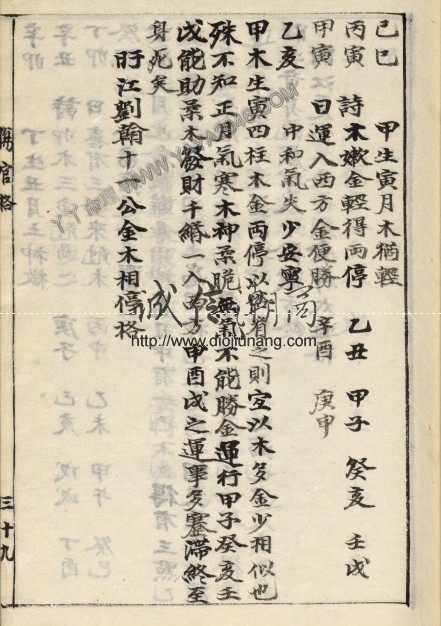 己巳　甲生寅月木猶輕
丙寅　詩木嫩金輕得兩停　乙丑　甲子　癸亥　壬戌
甲寅　曰運入西方金便勝　辛酉　庚申
乙亥　中和氣失少安寧
甲木生寅四柱木金兩停以
之則
以木多金少相似也
殊不知正月氣寒木神柔脆無氣不能勝金運行甲子癸亥壬
戌能助柔木發財千緡一入西方甲酉戌之運事多蹇滯終至
身死矣
盱江劉翰十一公金木相停格
傷官格
三十九
誠信
www.diojiunang.com